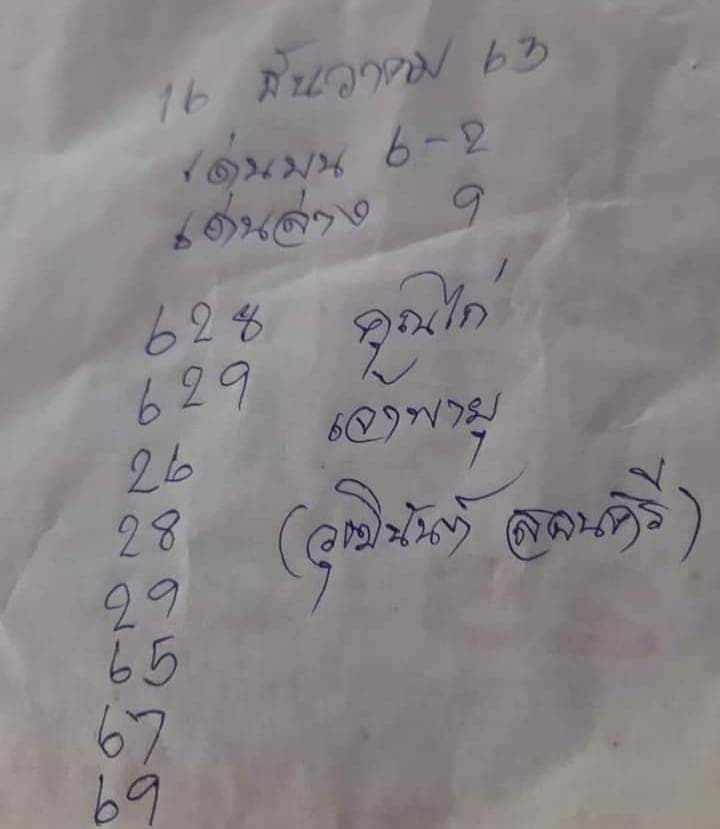 16 ธันวาคม 63
เด่นบน 6-2
เด่นล่าง 9
628 คุณไก่
629 เจ้าพายุ
26
28 (วุฒินันท์
29
65
67
69